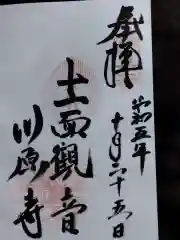 奉拝
令和五年
十月二十五日
十一面観音
川原寺